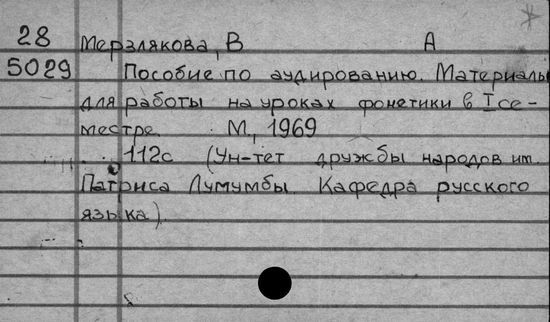 28 Мерзлякова, В А
5029 Пособие по аудированию. Материалы
для работы на уроках фонетики в I се-
местре. М, 1969
112с (Ун-тет дружбы народов им.
Патриса Лумумбы. Кафедра русского
языка).